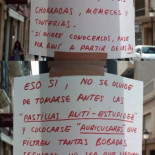 CHORRADAS, MEMECES Y
TONTERIAS.
SI QUIERE CONOCERLOS, PASE
ESO SI, NO SE OLVIDE
DE TOMARSE ANTES LAS
"PASTILLAS ANTI-ESTUPIDEZ"
y COLOCARSE "AURICULARES" QUE
FILTREN TANTAS BOBADAS